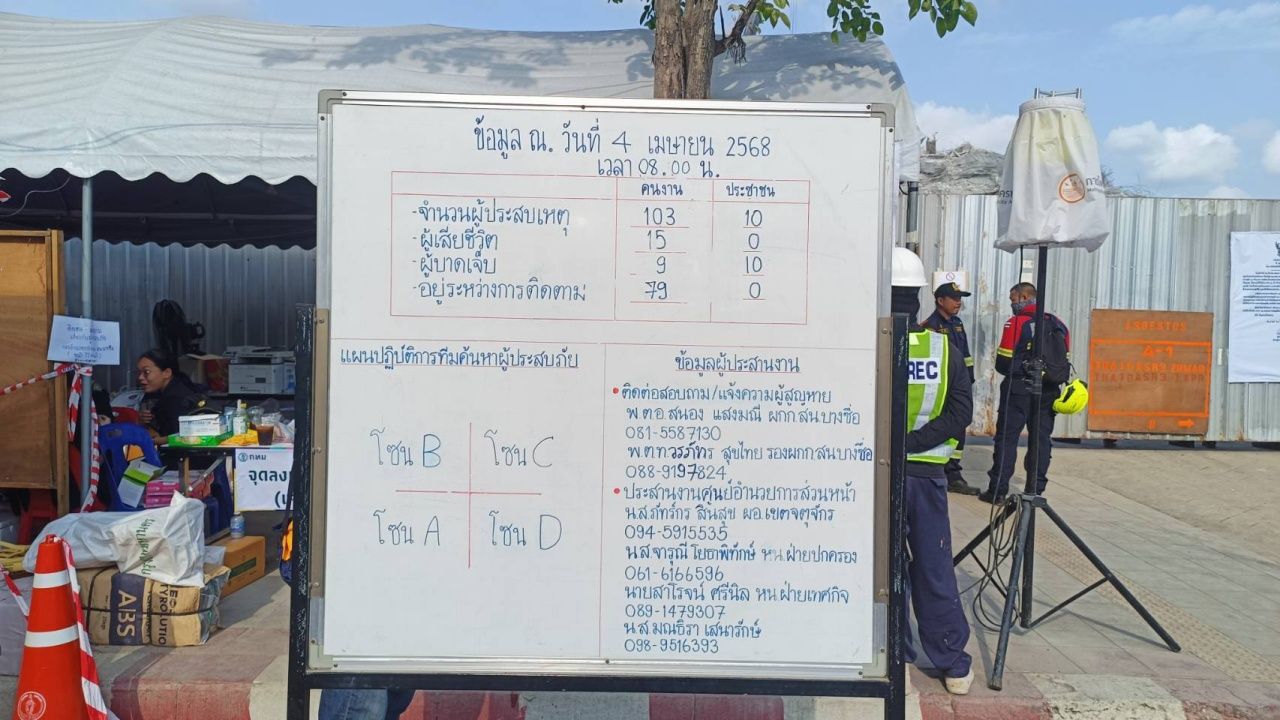 ข้อมูล ณ. วันที่ 4 เมษายน 2568
เวลา 08.00 น.
คนงาน ประชาชน
-จำนวนผู้ประสบเหตุ 103 10
-ผู้เสียชีวิต 15 0
-ผู้บาดเจ็บ 9 10
-อยู่ระหว่างการติดตาม 79 0
แผนปฏิบัติการทีมค้นหาผู้ประสบภัย
โซน B โซน C
โซน A โซน D
ข้อมูลผู้ประสานงาน
• ติดต่อสอบถาม/แจ้งความผู้สูญหาย
พ.ต.อ.สนอง แสงมณี ผกก.สน.บางซื่อ
081-5587130
พ.ต.ท.วรภัทร สุขไทย รองผกก.สน.บางซื่อ
088-9197824
• ประสานงานศูนย์อำนวยการส่วนหน้า
น.ส.ภัทร์กร สินสุข ผอ.เขตจตุจักร
094-5915535
น.ส.จารุณี โยธาพิทักษ์ หน.ฝ่ายปกครอง
061-6166596
นายสาโรจน์ ศรีนิล หน.ฝ่ายเทศกิจ
089-1479307
น.ส.มณธิรา เสนารักษ์
098-9516393
กทม
จุดลง
ABS
REC
ASBESTOS
A-1